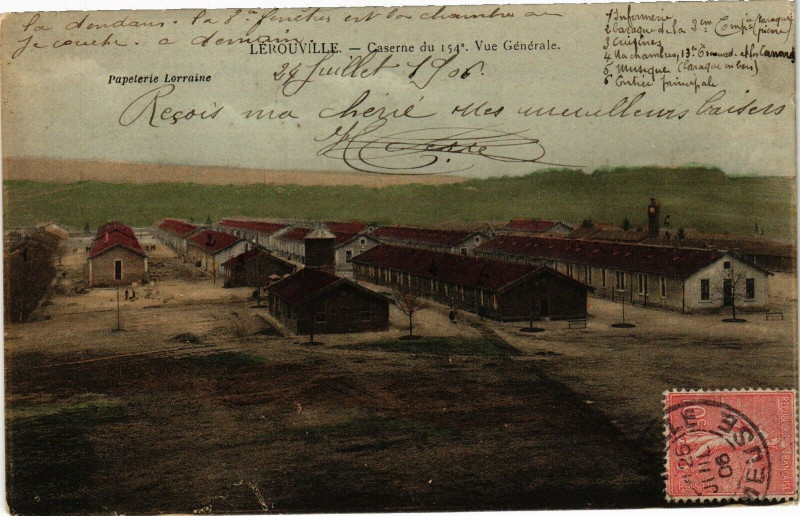 là dendans. la 8e fenêtres est la chambre ou
je couche. a demain
LÉROUVILLE. — Caserne du 154e. Vue Générale.
Papeterie Lorraine
24 Juillet 1906.
Reçois ma chérie mes meilleurs baisers
1 Infirmerie
2 Baraque de la 3em Compie (baraque pierre)
3 Cuisines
4 Ma chambre, 13e Escouad.
5 Musique (baraque en bois)
6 Entrée principale
RÉPUBLIQUE FRANÇAISE
10
25
JUIL
06
MEUSE